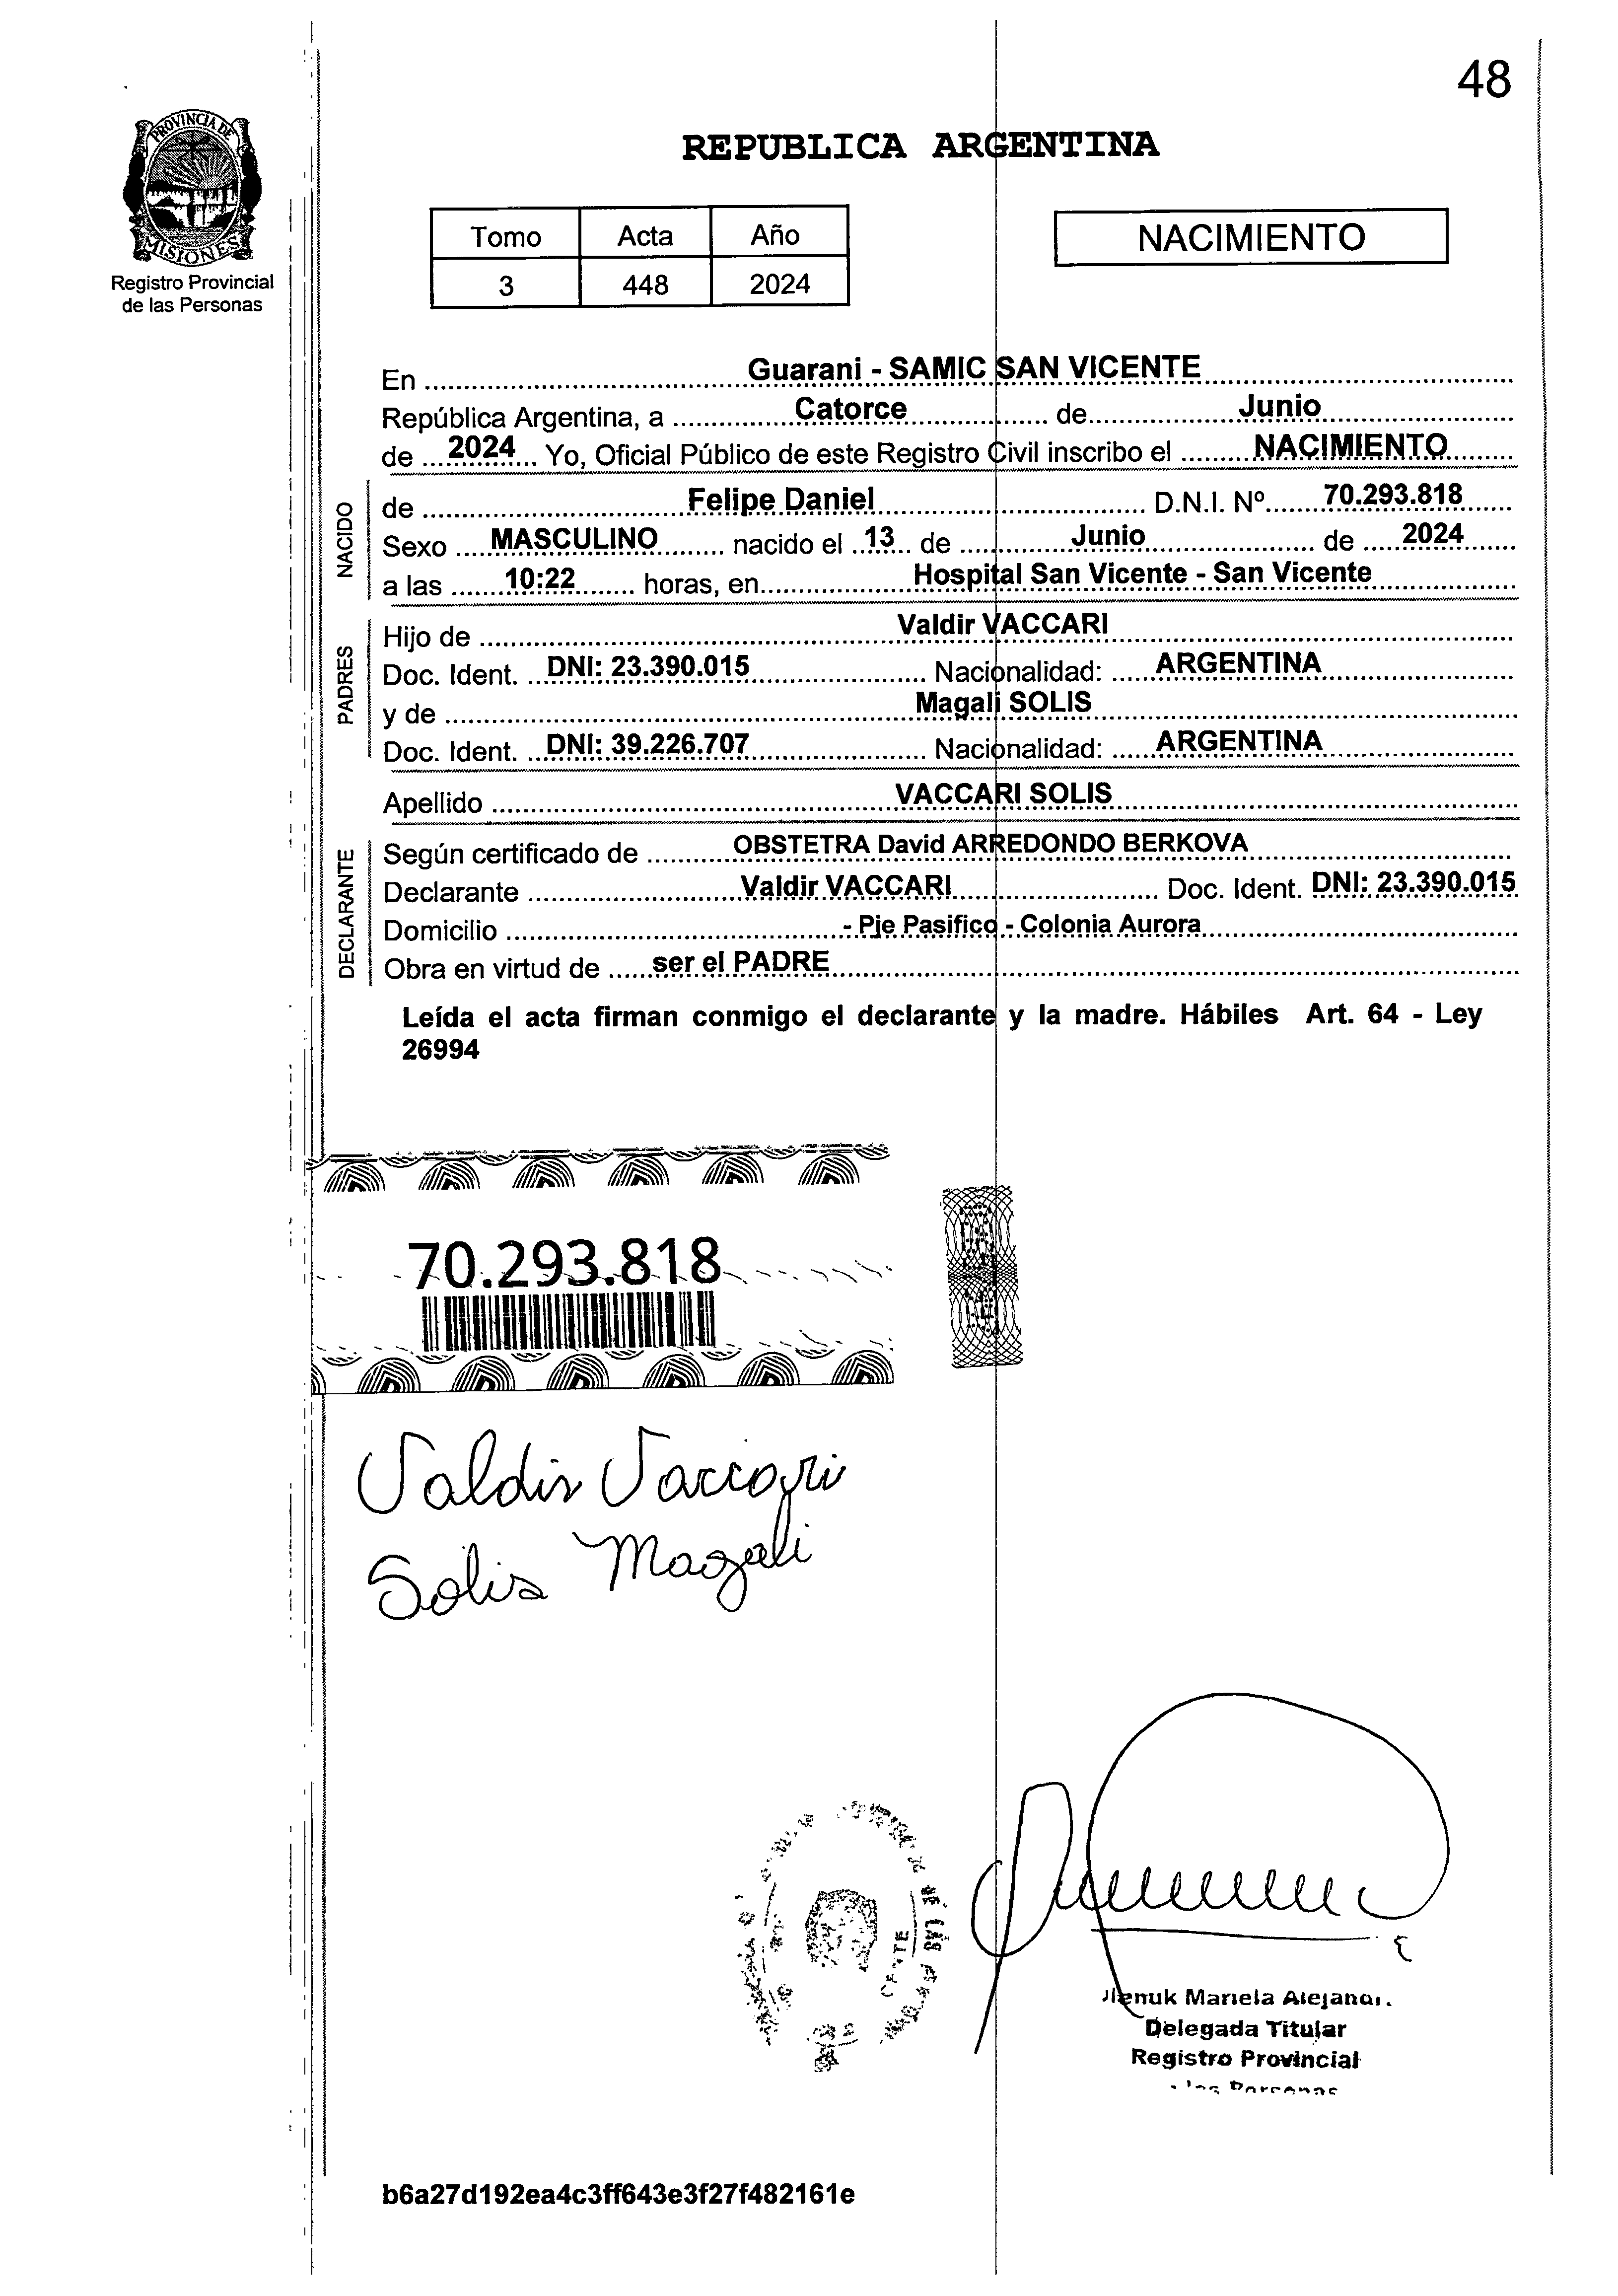 48
PROVINCIA DE
MISIONES
Registro Provincial
de las Personas
REPUBLICA ARGENTINA
Tomo Acta Año
3 448 2024
NACIMIENTO
En Guarani - SAMIC SAN VICENTE
República Argentina, a Catorce de Junio
de 2024 Yo, Oficial Público de este Registro Civil inscribo el NACIMIENTO
NACIDO
de Felipe Daniel D.N.I. Nº 70.293.818
Sexo MASCULINO nacido el 13 de Junio de 2024
a las 10:22 horas, en Hospital San Vicente - San Vicente
PADRES
Hijo de Valdir VACCARI
Doc. Ident. DNI: 23.390.015 Nacionalidad: ARGENTINA
y de Magali SOLIS
Doc. Ident. DNI: 39.226.707 Nacionalidad: ARGENTINA
Apellido VACCARI SOLIS
DECLARANTE
Según certificado de OBSTETRA David ARREDONDO BERKOVA
Declarante Valdir VACCARI Doc. Ident. DNI: 23.390.015
Domicilio - Pje Pasifico - Colonia Aurora
Obra en virtud de ser el PADRE
Leída el acta firman conmigo el declarante y la madre. Hábiles Art. 64 - Ley
26994
70.293.818
Valdir Vaccari
Solis Magali
Mariela
Delegada Titular
Registro Provincial
las Personas
b6a27d192ea4c3ff643e3f27f482161e